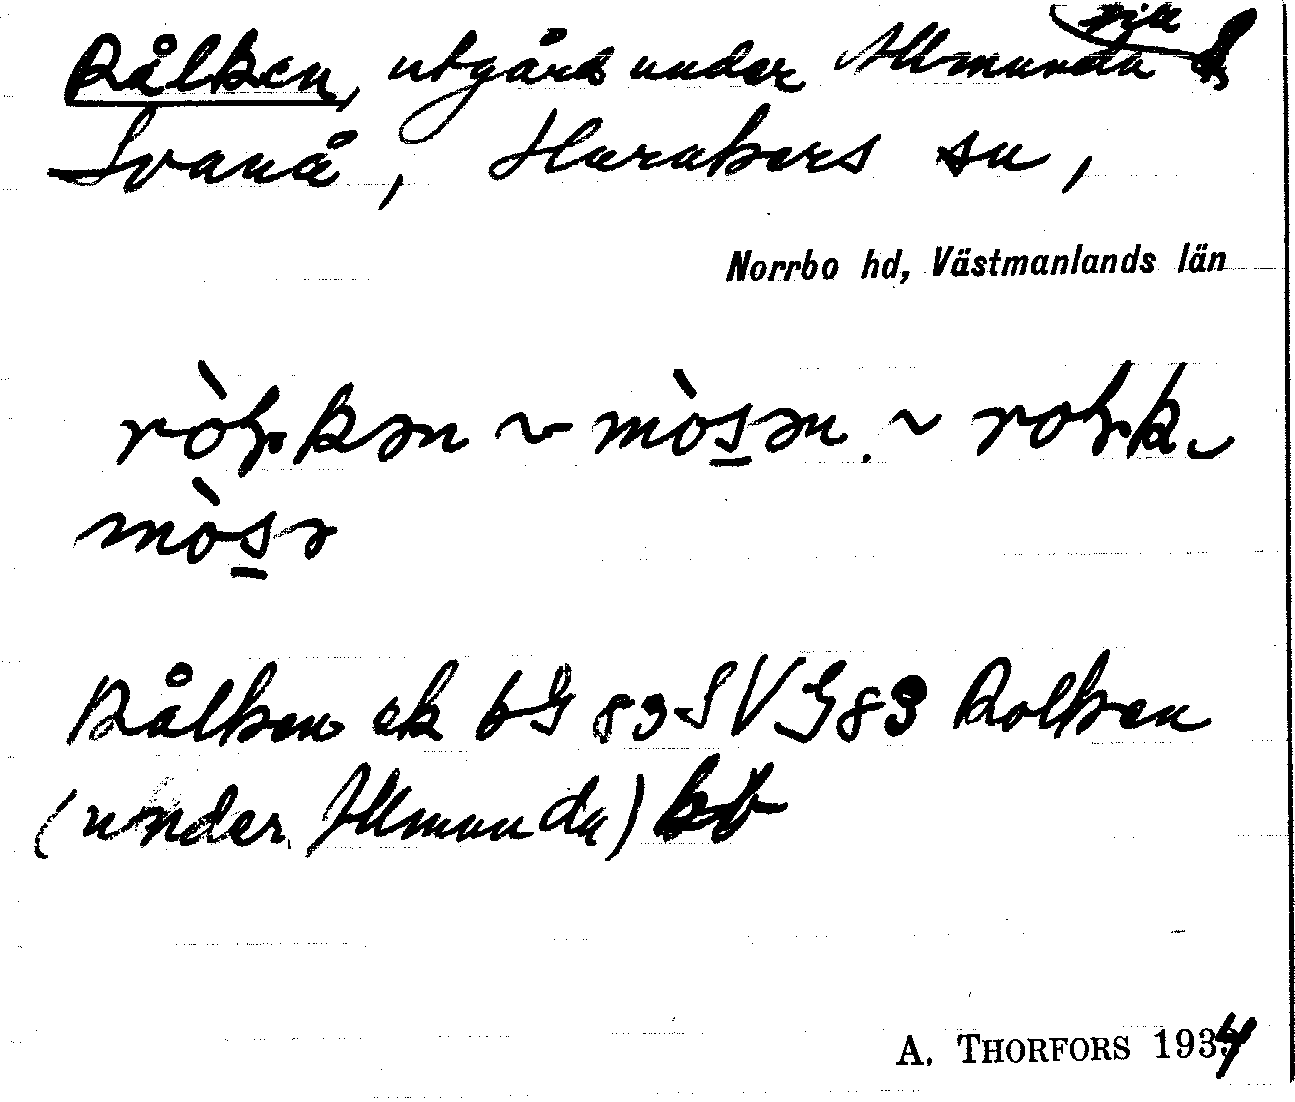 Rålken, utgård under Allmunda
Svanå, Harakers sn,
Norrbo hd, Västmanlands län
ròlkən ~ mòsən ~ rolk-
mòsə
Rålken ek bG 83 SV G83 Rolken
(under Allmunda)
A. THORFORS 1934